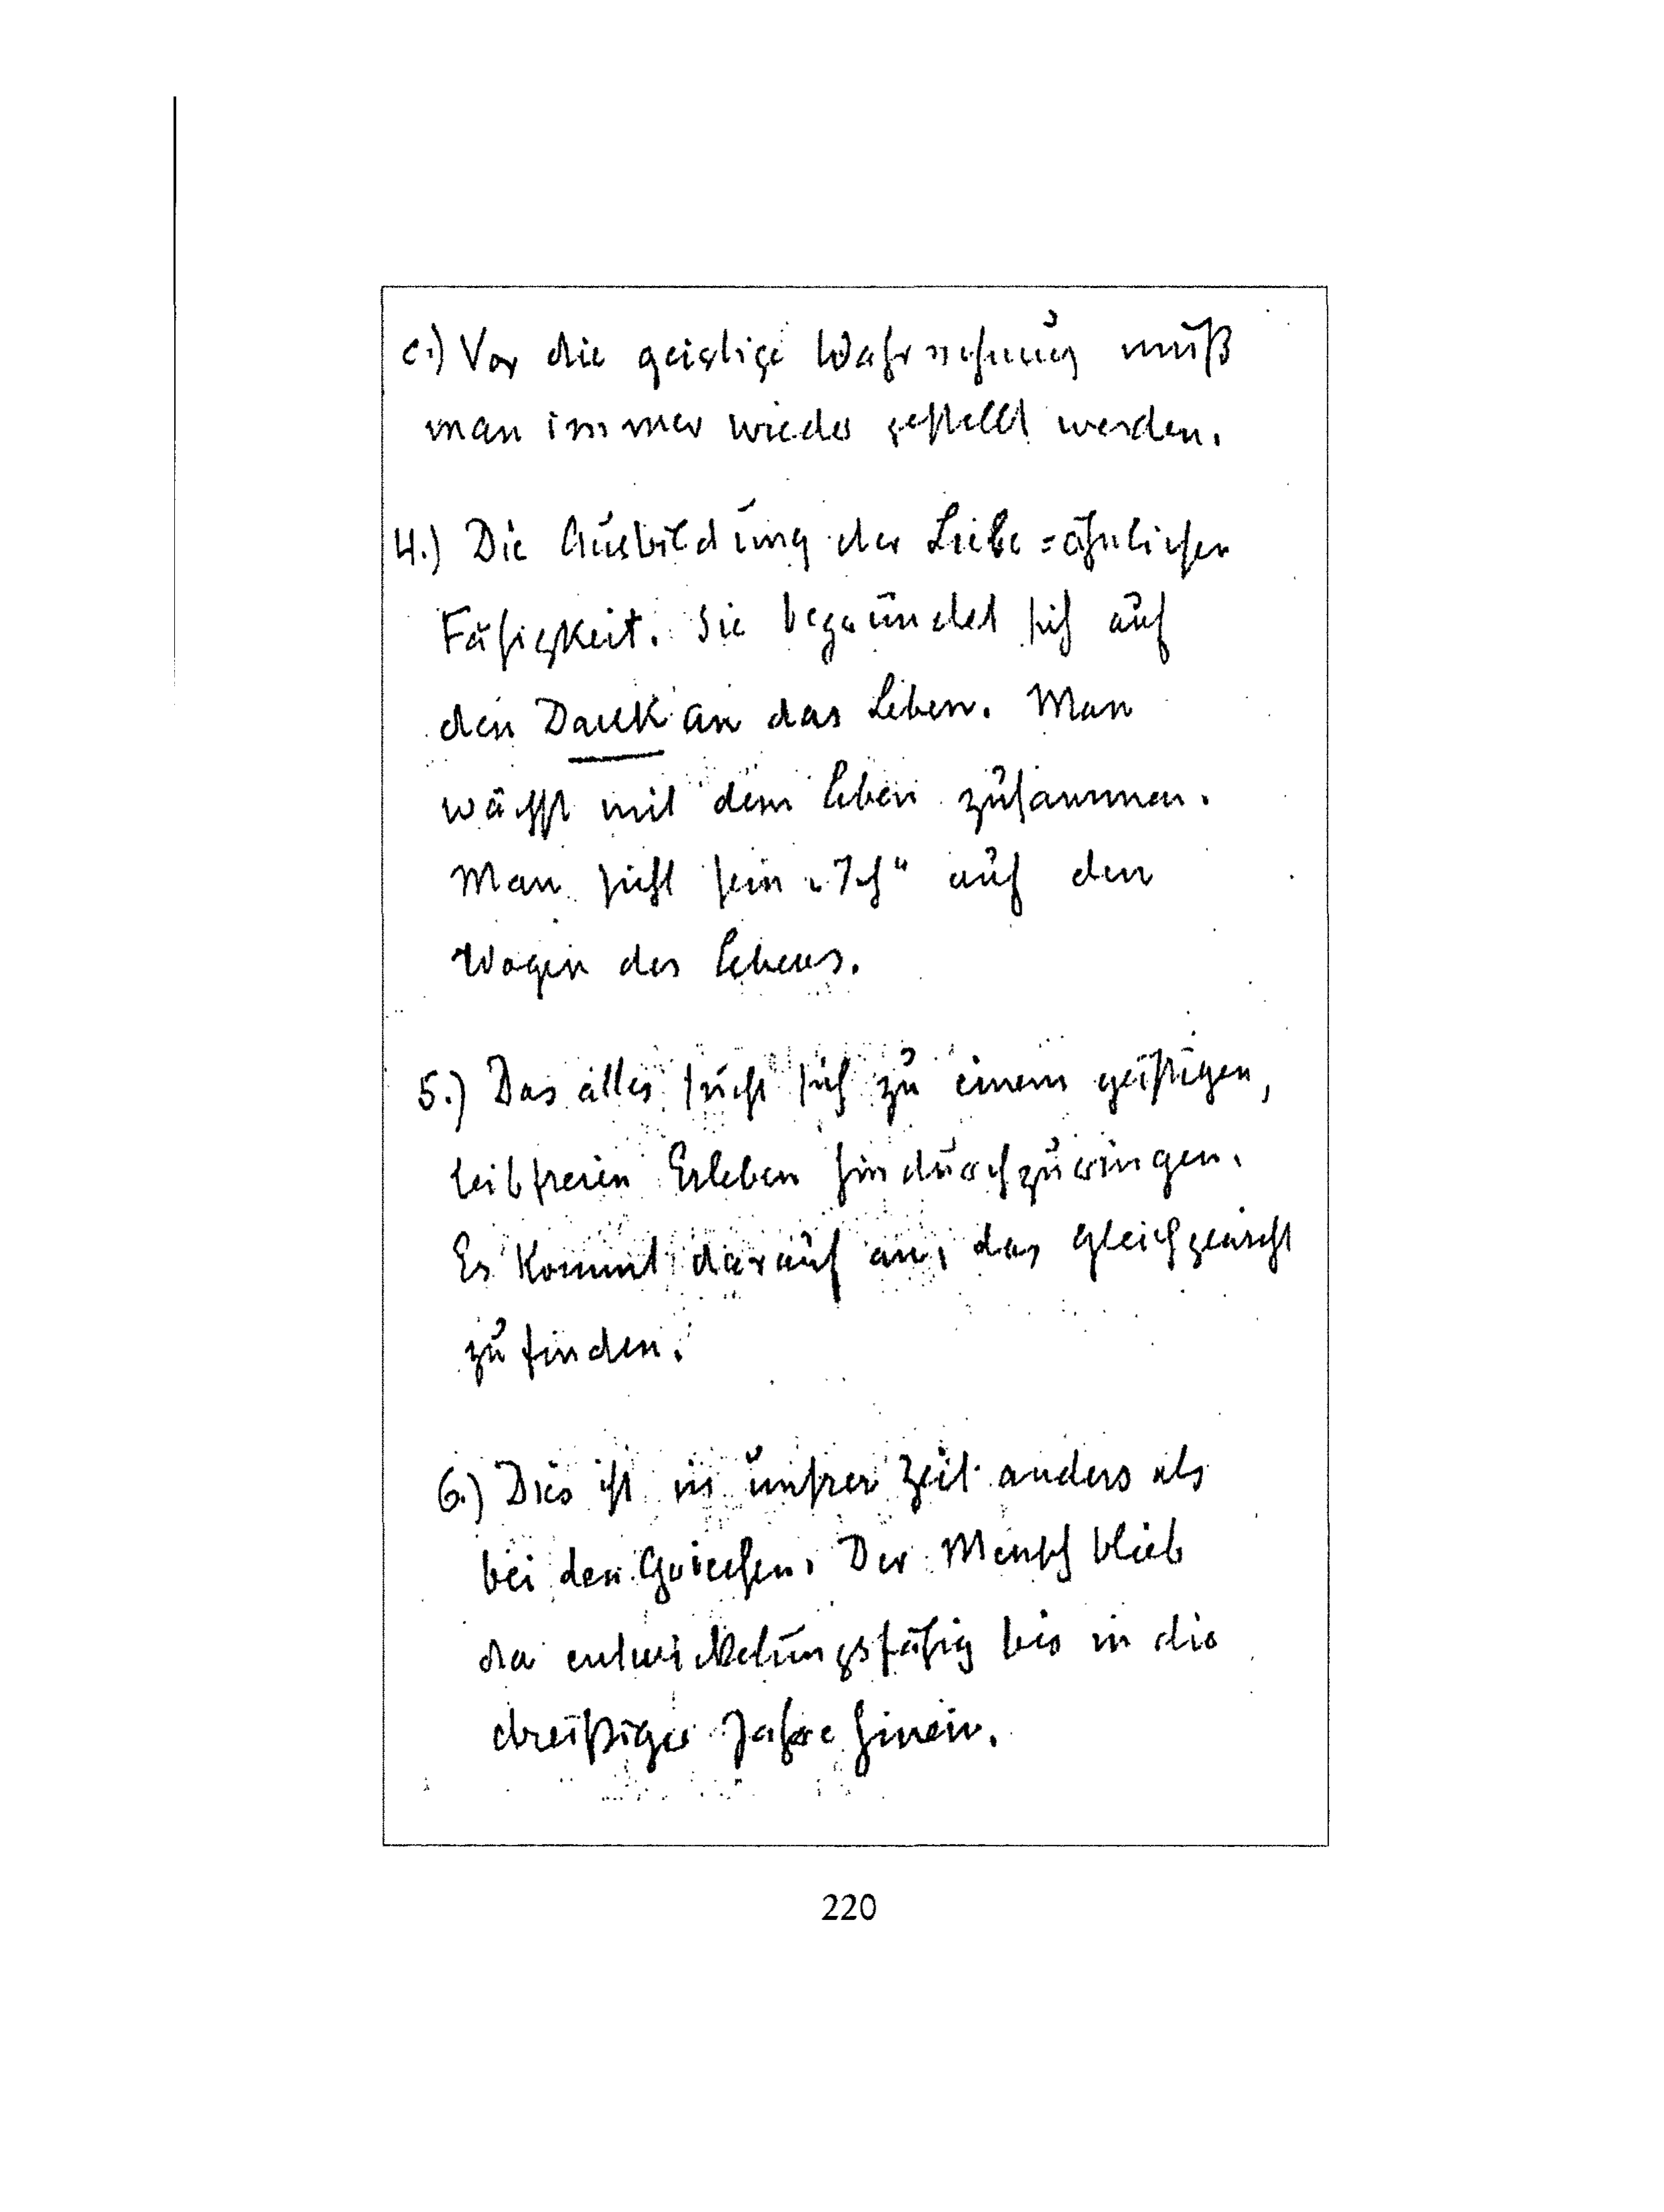 c.) Vor die geistige Wahrnehmung muß
man immer wieder gestellt werden.
4.) Die Ausbildung der Liebe=ähnlichen
Fähigkeit. Sie begründet sich auf
den Dank an das Leben. Man
wächst mit dem Leben zusammen.
Man sieht sein „Ich“ auf den
Wogen des Lebens.
5.) Das alles sucht sich zu einem geistigen,
leibfreien Erleben hindurchzuringen.
Es kommt darauf an, das Gleichgewicht
zu finden.
6.) Dies ist in unsrer Zeit anders als
bei den Griechen. Der Mensch blieb
da entwickelungsfähig bis in die
dreißiger Jahre hinein.
220